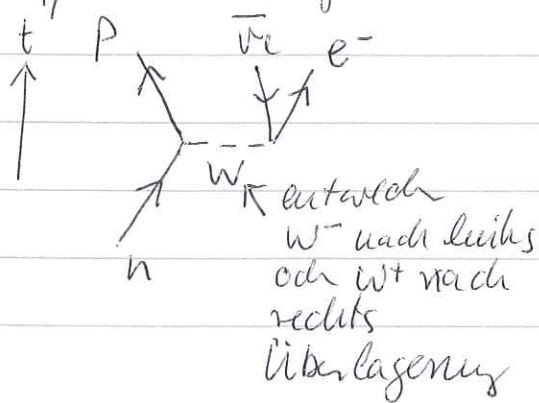 t p ν̄e e⁻
W
n
entweder
W⁻ nach links
oder W⁺ nach
rechts
Überlagerung